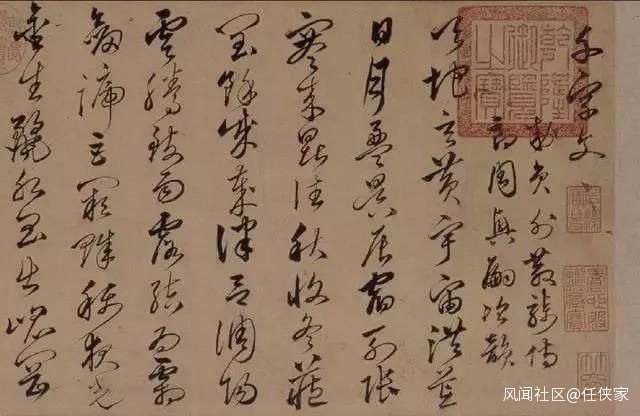 千字文
勑員外散騎侍
郎周興嗣次韻
天地玄黃宇宙洪荒
日月盈昃辰宿列張
寒來暑往秋收冬藏
閏餘成歲律呂調陽
雲騰致雨露結為霜
劍號巨闕珠稱夜光
金生麗水玉出崐岡
乾隆御覽之寶
风闻社区@任侠家